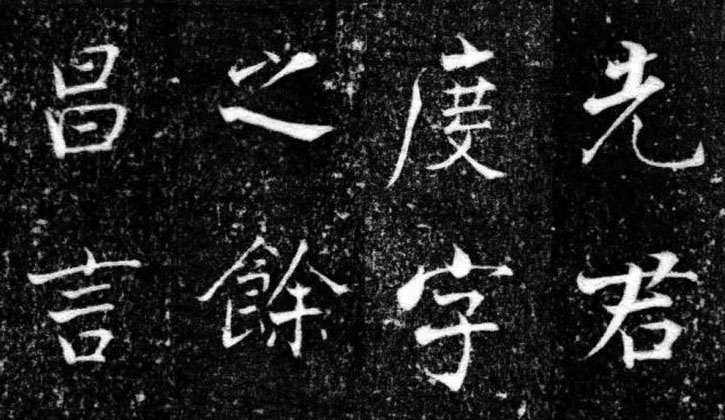 先君
度字
之餘
昌言